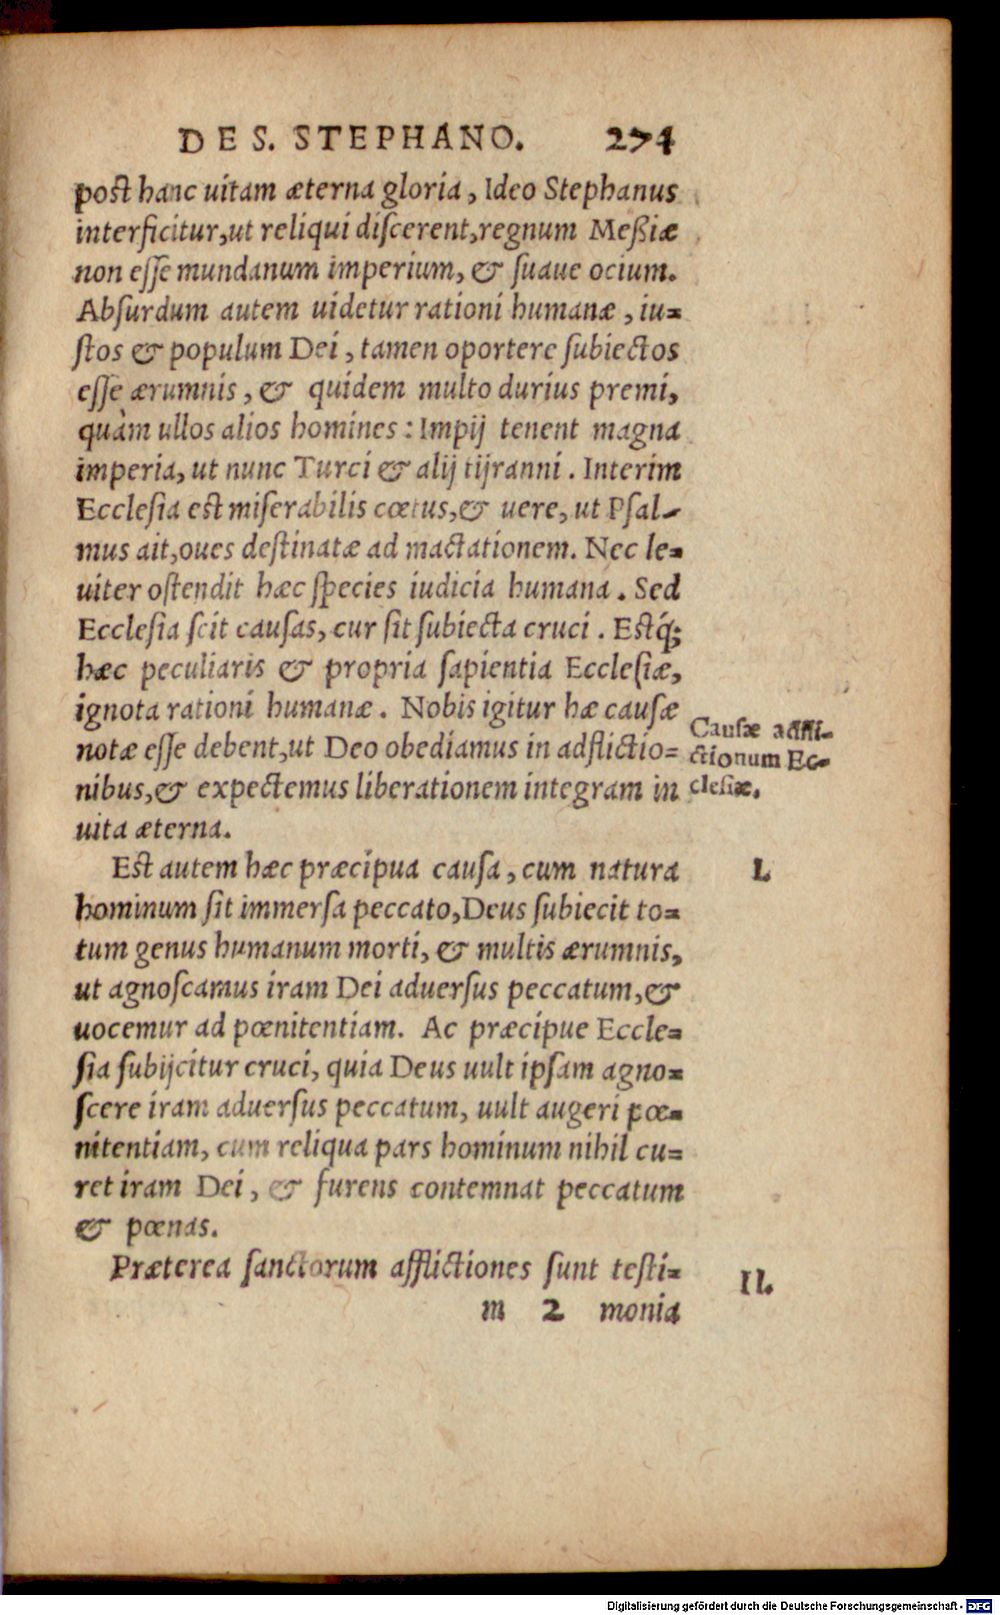 DE S. STEPHANO. 274
post hanc uitam æterna gloria, Ideo Stephanus
interficitur,ut reliqui discerent,regnum Meßiæ
non esse mundanum imperium, & suaue ocium.
Absurdum autem uidetur rationi humanæ, iu=
stos & populum Dei, tamen oportere subiectos
esse ærumnis, & quidem multo durius premi,
quàm ullos alios homines: Impij tenent magna
imperia, ut nunc Turci & alij tijranni. Interim
Ecclesia est miserabilis cœtus,& uere, ut Psal-
mus ait,oues destinatæ ad mactationem. Nec le=
uiter ostendit hæc species iudicia humana. Sed
Ecclesia scit causas, cur sit subiecta cruci. Estq́;
hæc peculiaris & propria sapientia Ecclesiæ,
ignota rationi humanæ. Nobis igitur hæ causæ
notæ esse debent,ut Deo obediamus in adflictio=
nibus,& expectemus liberationem integram in
uita æterna.
Causæ adfli-
ctionum Ec-
clesiæ.
Est autem hæc præcipua causa, cum natura
I.
hominum sit immersa peccato,Deus subiecit to=
tum genus humanum morti, & multis ærumnis,
ut agnoscamus iram Dei aduersus peccatum,&
uocemur ad pœnitentiam. Ac præcipue Eccle=
sia subijcitur cruci, quia Deus uult ipsam agno=
scere iram aduersus peccatum, uult augeri pœ=
nitentiam, cum reliqua pars hominum nihil cu=
ret iram Dei, & furens contemnat peccatum
& pœnas.
Præterea sanctorum afflictiones sunt testi=
II.
m 2 monia
Digitalisierung gefördert durch die Deutsche Forschungsgemeinschaft - DFG